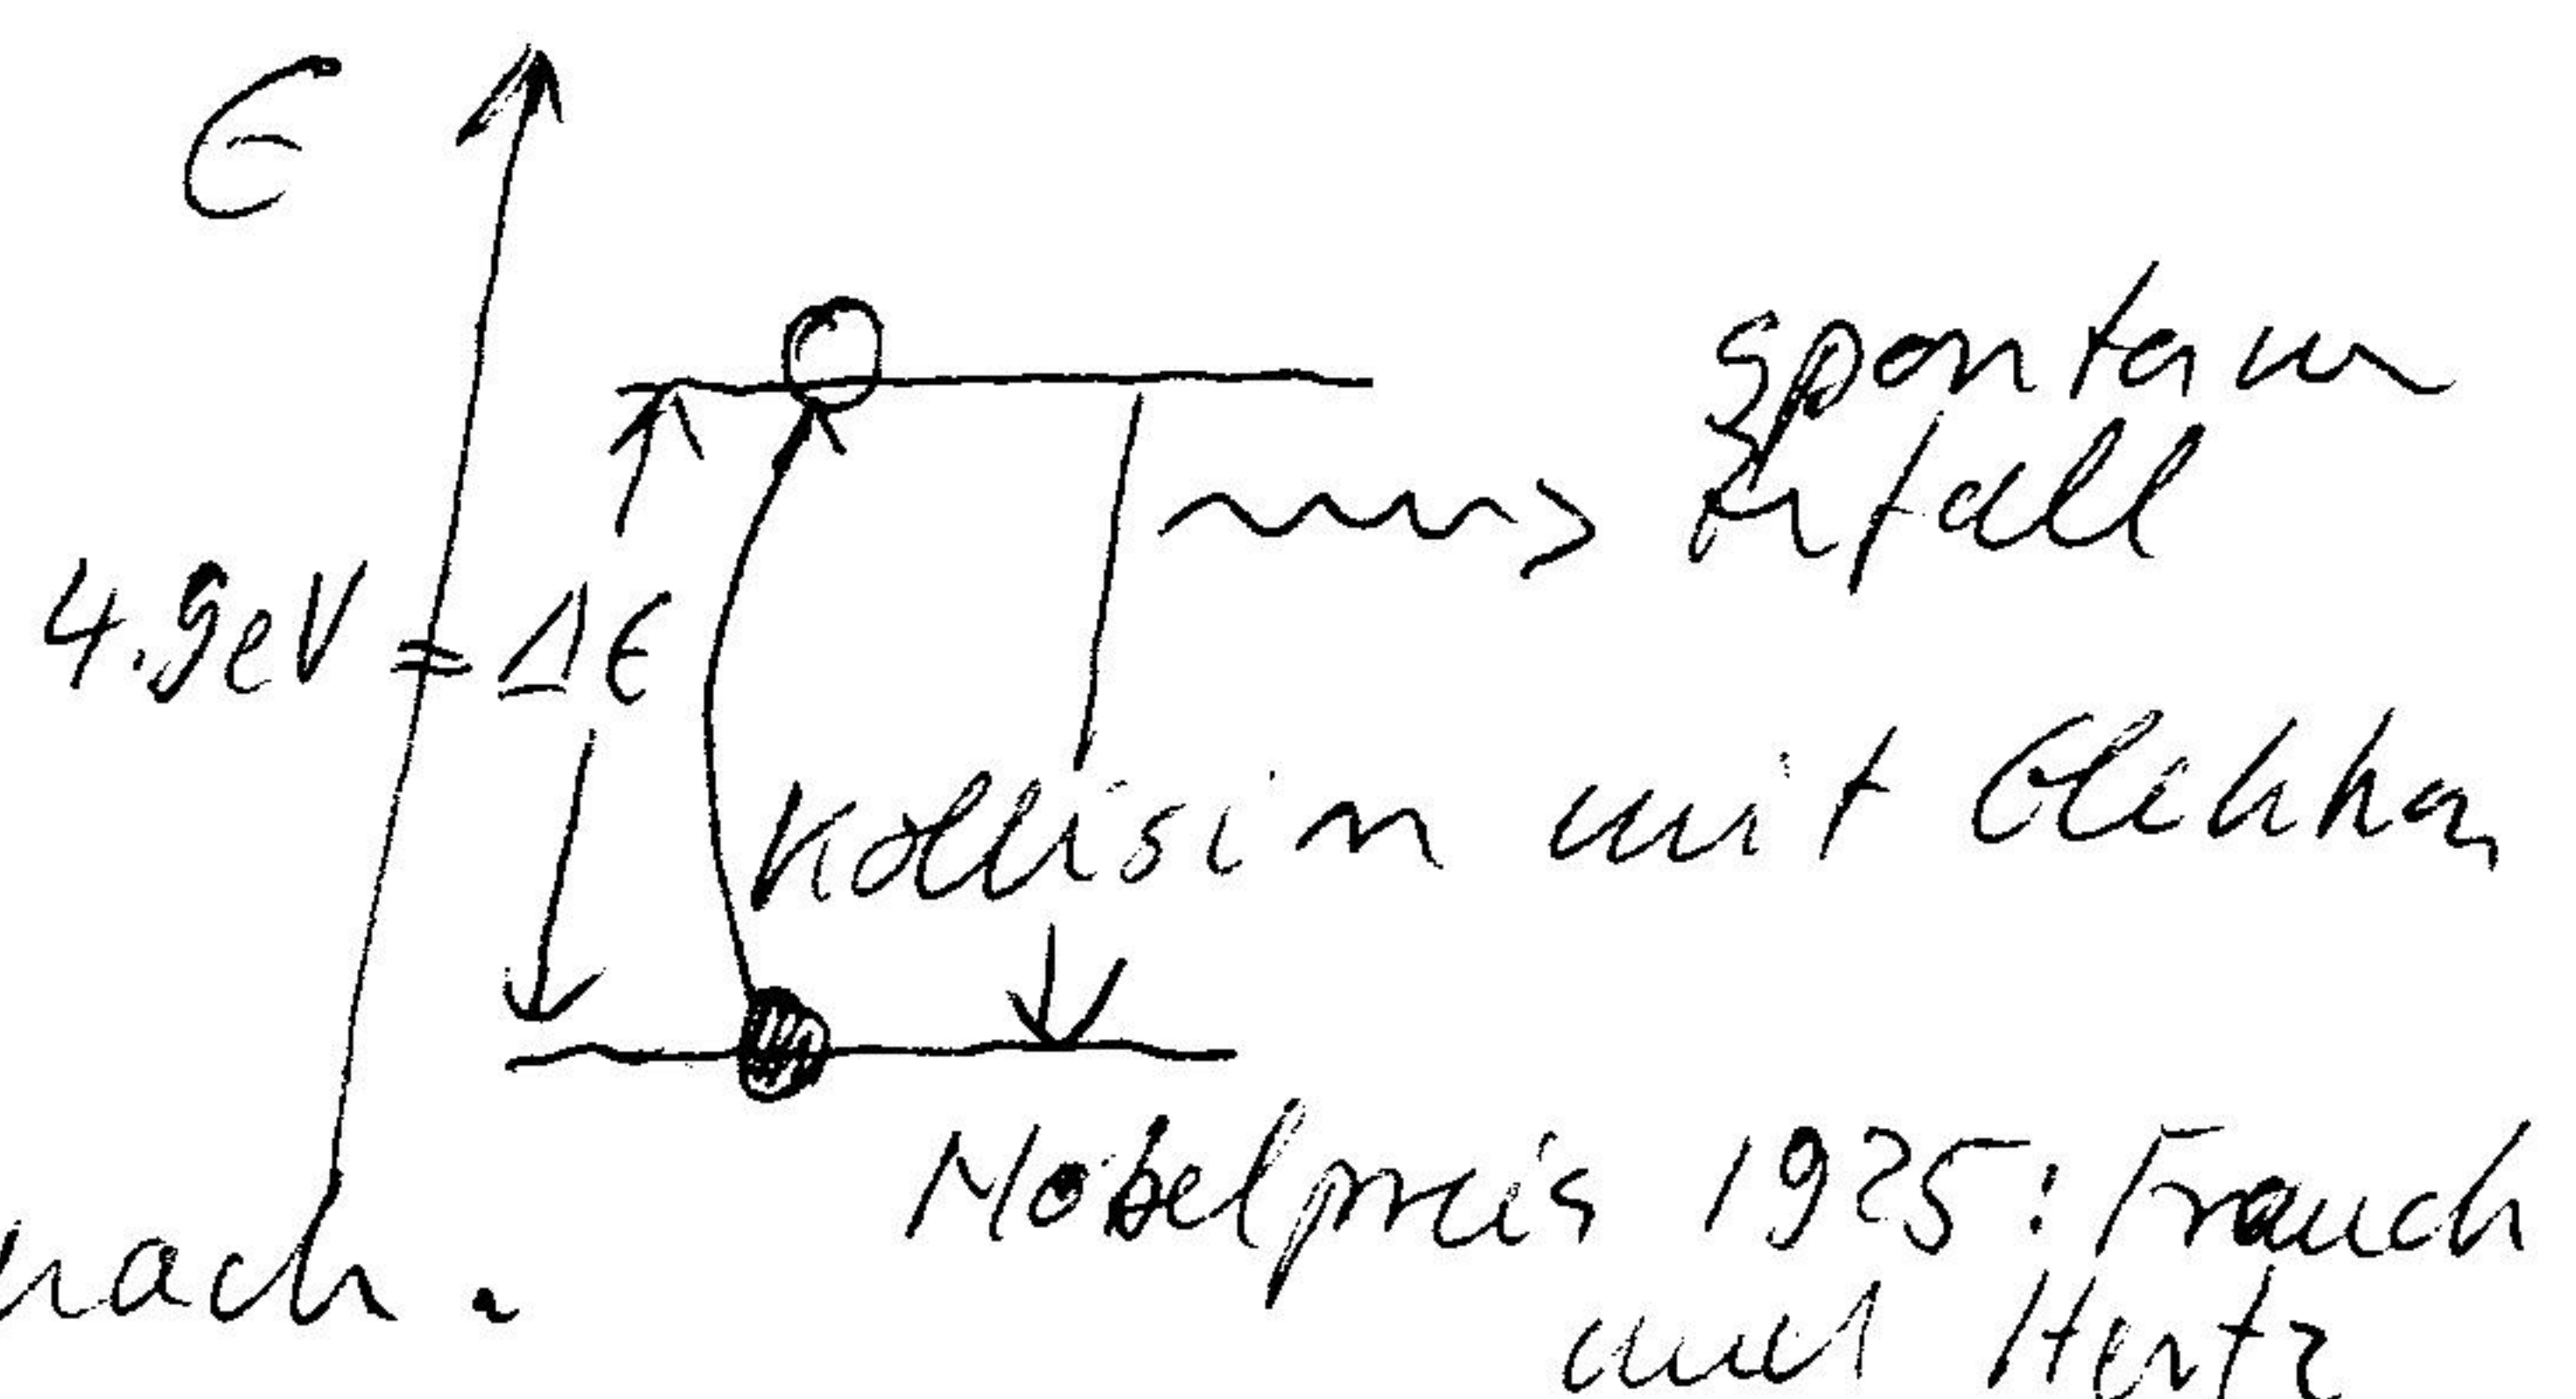 E
spontan
Zerfall
4.9eV = ΔE
Kollision mit Elektron
Nobelpreis 1925: Franck
nach.
und Hertz